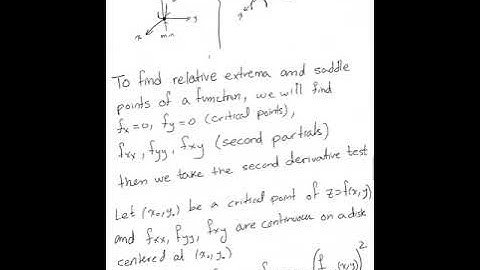 x y
min
x
To find relative extrema and saddle
points of a function, we will find
fx=0, fy=0 (critical points),
fxx, fyy, fxy (second partials)
then we take the second derivative test
Let (x₀,y₀) be a critical point of z=f(x,y)
and fxx, fyy, fxy are continuous on a disk
centered at (x₀,y₀)
(f (x,y))²